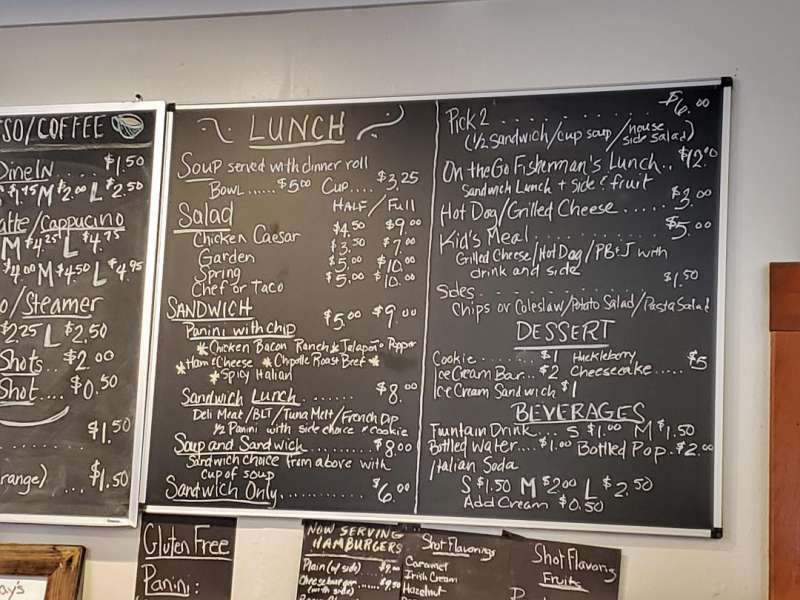 SO/COFFEE
Dine In .... $1.50
$1.75 M $2.00 L $2.50
atte/Cappucino
M $4.25 L $4.75
$4.00 M $4.50 L $4.95
o/Steamer
$2.25 L $2.50
Shots.. $2.00
Shot.... $0.50
$1.50
range) .... $1.50
LUNCH
Soup served with dinner roll
Bowl...... $5.00 Cup.... $3.25
Salad HALF/Full
Chicken Caesar $4.50 $9.00
Garden $3.50 $7.00
Spring $5.00 $10.00
Chef or Taco $5.00 $10.00
SANDWICH $5.00 $9.00
Panini with chip
*Chicken Bacon Ranch *Jalapeno Popper
*Ham & Cheese *Chipotle Roast Beef *
*Spicy Italian
Sandwich Lunch........ $8.00
Deli Meat/BLT/Tuna Melt/French Dip
1/2 Panini with side choice & cookie
Soup and Sandwich....... $8.00
Sandwich choice from above with
cup of soup
Sandwich Only............ $6.00
Pick 2 ............ $6.00
(1/2 sandwich/cup soup/house side salad)
On the Go Fisherman's Lunch.. $12.00
Sandwich Lunch + side & fruit
Hot Dog/Grilled Cheese...... $3.00
Kid's Meal .............. $5.00
Grilled Cheese/Hot Dog/PB&J with
drink and side
Sides.................. $1.50
Chips or Coleslaw/Potato Salad/Pasta Salad
DESSERT
Cookie......... $1 Huckleberry
Ice Cream Bar... $2 Cheesecake..... $5
Ice Cream Sandwich $1
BEVERAGES
Fountain Drink... S $1.00 M $1.50
Bottled Water.... $1.00 Bottled Pop. $2.00
Italian Soda
S $1.50 M $2.00 L $2.50
Add Cream $0.50
ay's
Gluten Free
Panini:
NOW SERVING
HAMBURGERS
Plain (w/ side) $9.00
Cheeseburger .... $9.50
(with side)
Shot Flavorings
Caramel
Irish Cream
Hazelnut
Shot Flavoring
Fruits